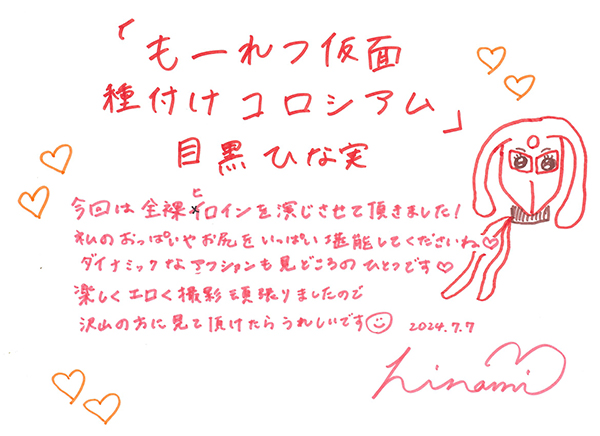 「もーれつ仮面
種付けコロシアム」
目黒ひな実
今回は全裸ヒロインを演じさせて頂きました!
私のおっぱいやお尻をいっぱい堪能してくださいね♡
ダイナミックなアクションも見どころのひとつです♡
楽しくエロく撮影頑張りましたので
沢山の方に見て頂けたらうれしいです☺ 2024.7.7
hinami